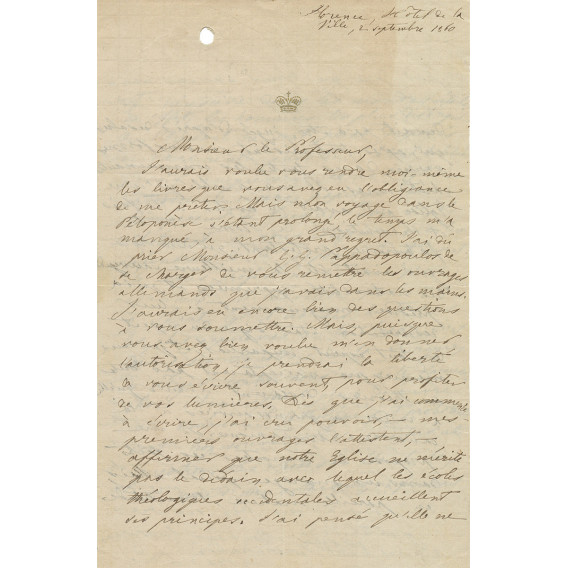 Florence, Hôtel de la
Ville, 2 septembre 1860
Monsieur le Professeur,
J'aurais voulu vous rendre moi-même
les livres que vous avez eu l'obligeance
de me prêter. Mais mon voyage dans le
Péloponèse s'étant prolongé le temps m'a
manqué, à mon grand regret. J'ai dû
prier Monsieur G. G. Pappadopoulos de
se charger de vous remettre les ouvrages
allemands que j'avais dans les mains.
J'aurais eu encore bien des questions
à vous soumettre. Mais, puisque
vous avez bien voulu m'en donner
l'autorisation, je prendrai la liberté
de vous écrire souvent pour profiter
de vos lumières. Dès que j'ai commencé
à écrire, j'ai cru pouvoir, — mes
premiers ouvrages l'attestent, —
affirmer que notre Eglise ne mérite
pas le dédain avec lequel les écoles
théologiques occidentales accueillent
ses principes. J'ai pensé qu'elle ne